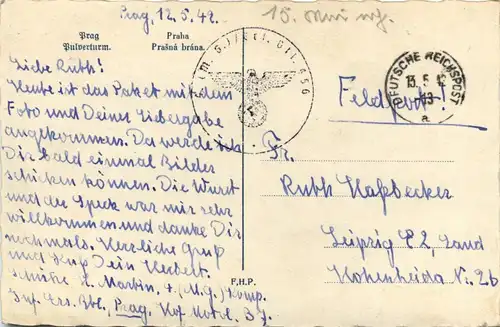 Prag, 12.5.42.
15. 
Prag Praha
Pulverturm. Prašná brána.
Liebe Ruth!
Heute ist das Paket mit dem
Foto und Deiner Liebergabe
angekommen. Da werde ich
Dir bald einmal Bilder
schicken können. Die Wurst
und der Speck war mir sehr
willkommen und danke Dir
nochmals. Herzliche Grüß
und Kuß Dein Herbert.
Schütze H. Martin, 4. (M.G.) Komp.
Inf. Ers. Btl., Prag,
DEUTSCHE REICHSPOST
13.5.42
13
a
Feldpost!
Fr.
Ruth Haßbecker
Leipzig C2, Land
Hohenheida Nr. 26
F.H.P.